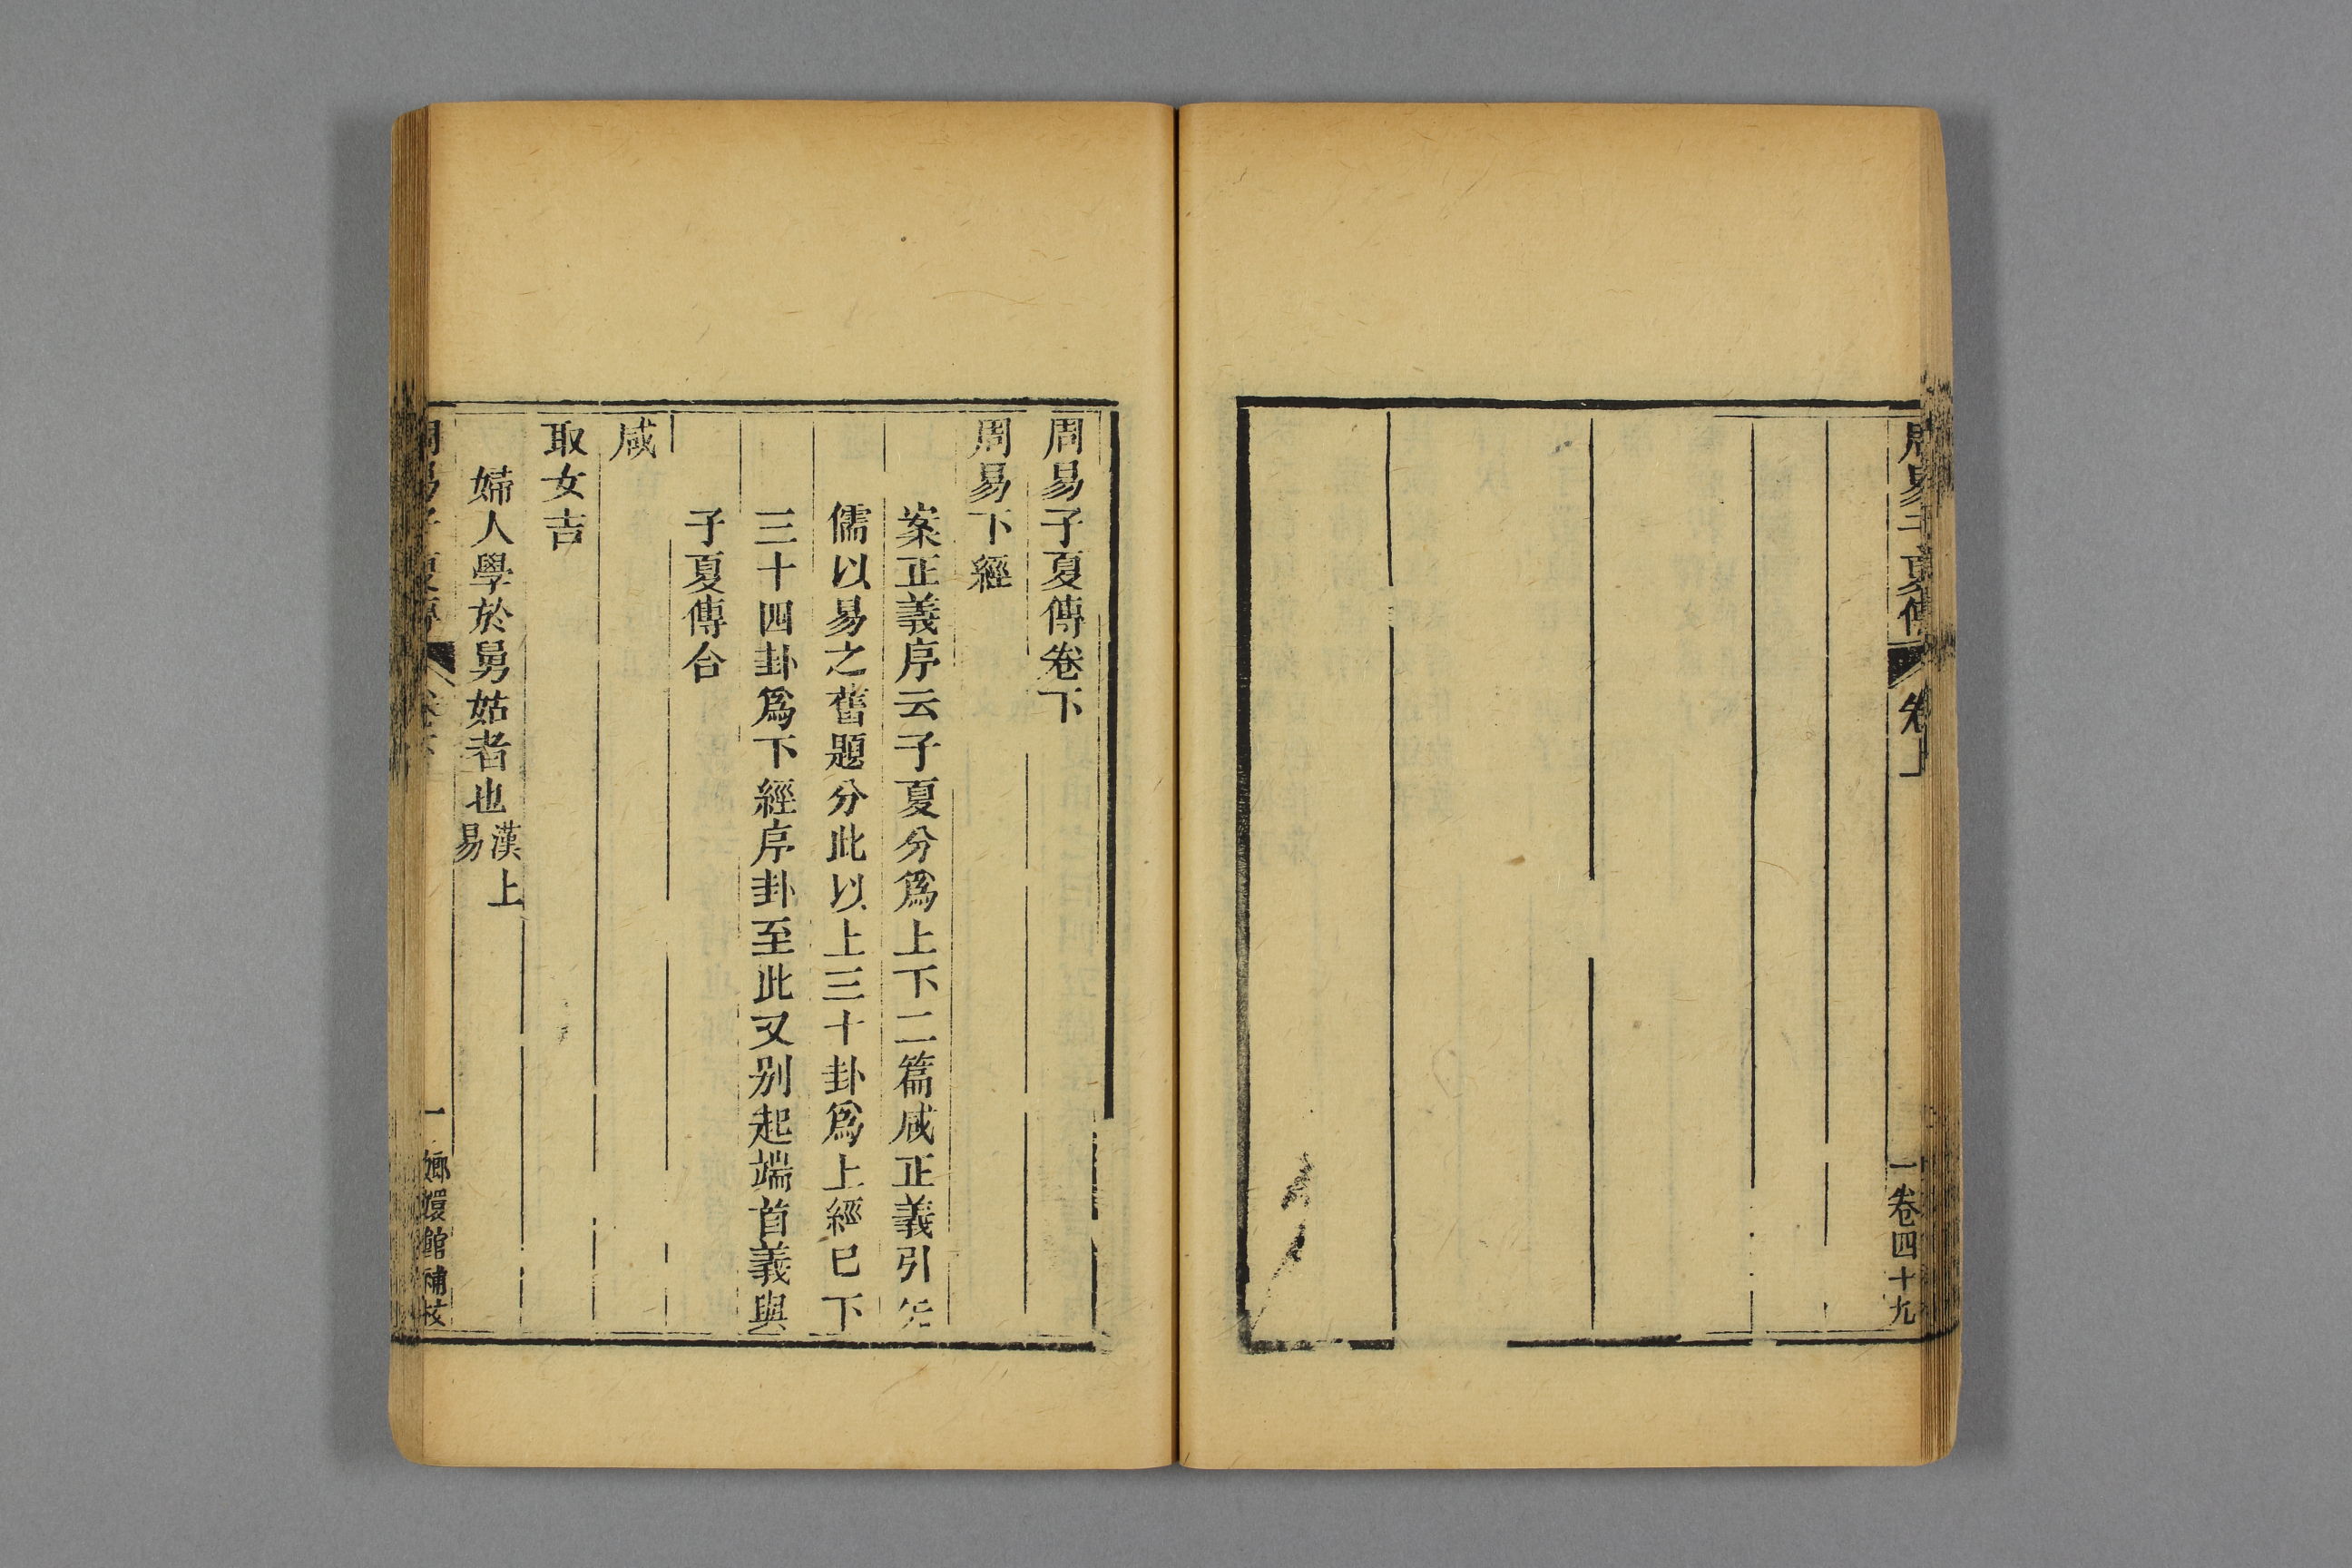 周易子夏傳
卷上
一卷四十九
周易子夏傳卷下
周易下經
案正義序云子夏分爲上下二篇咸正義引先
儒以易之舊題分此以上三十卦爲上經巳下
三十四卦爲下經序卦至此又别起端首義與
子夏傳合
咸
取女吉
婦人學於舅姑者也漢上易
周易子夏傳
卷下
一
嫏嬛館補校